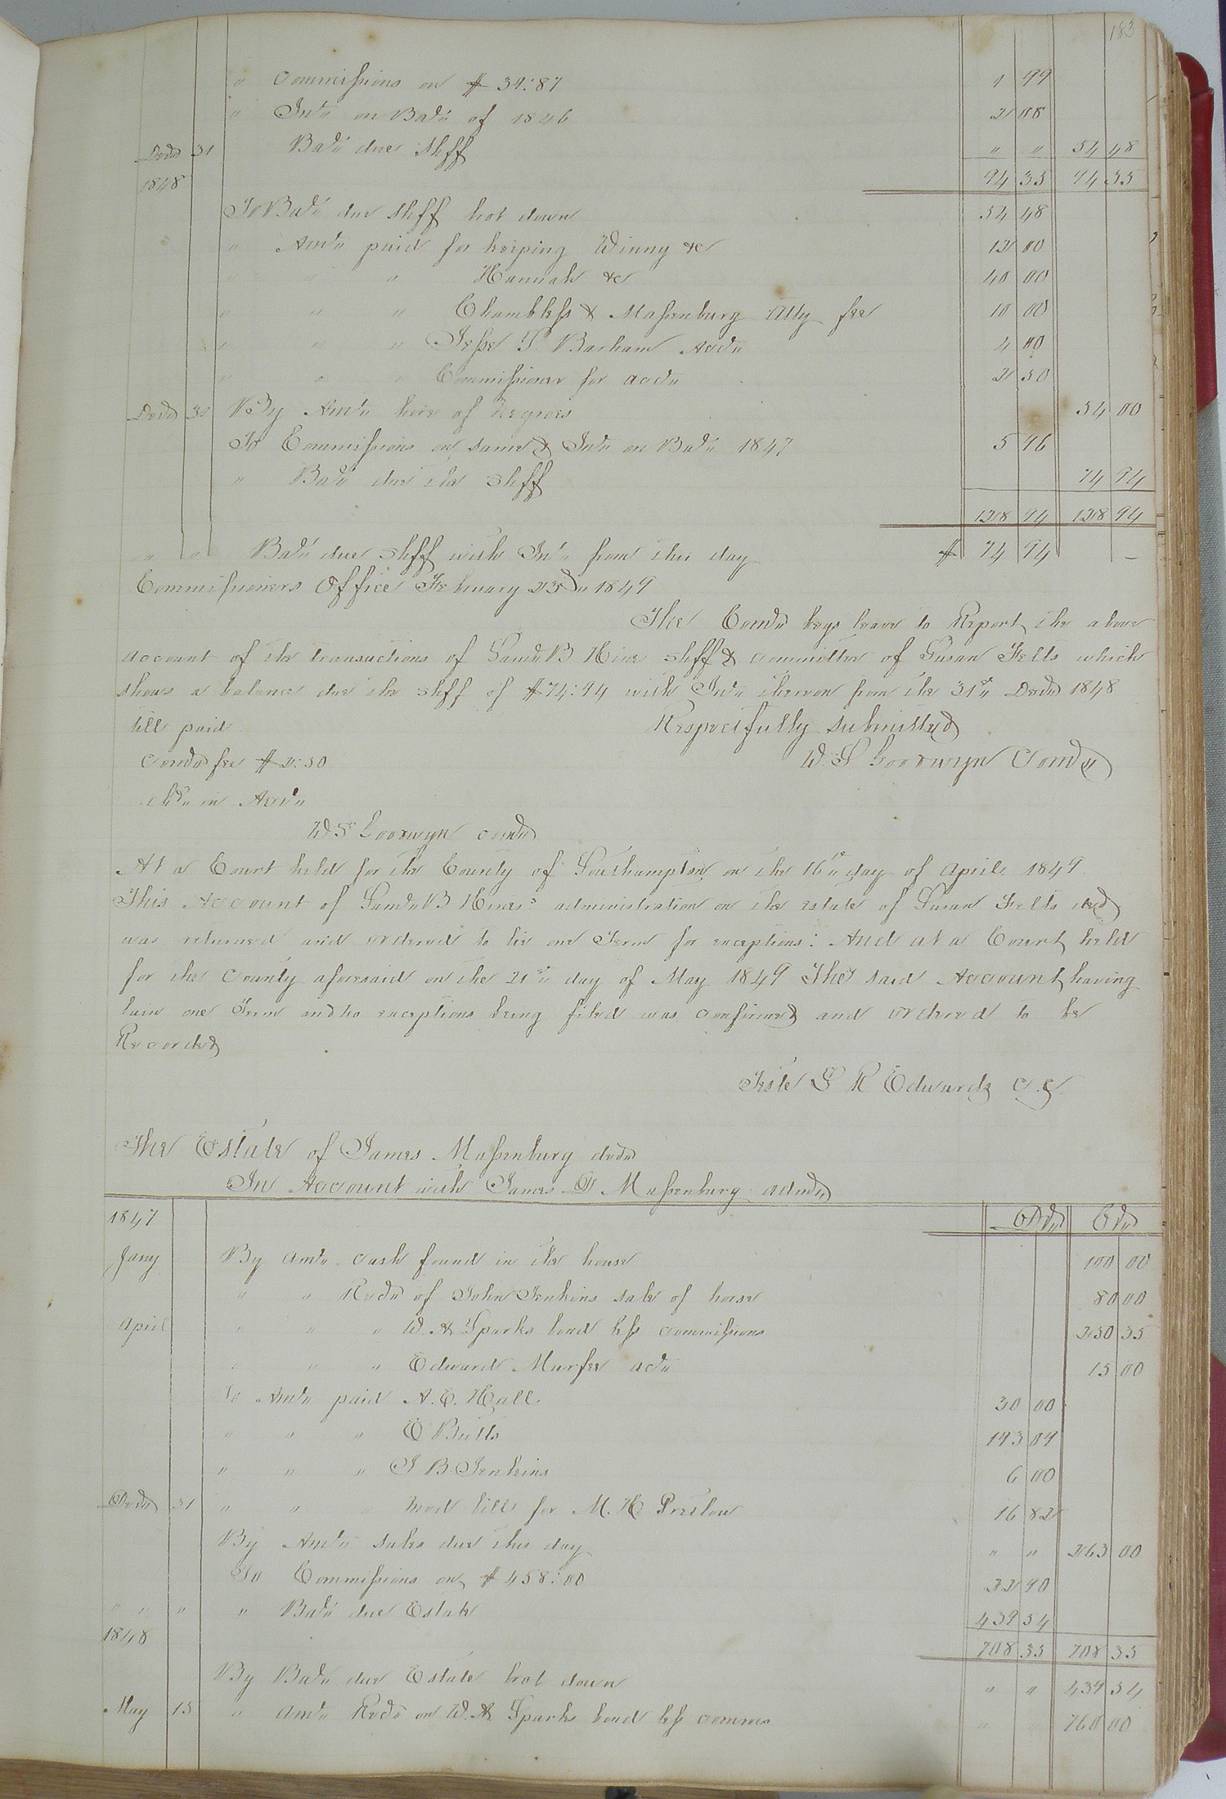 183
" Commissions on $ 39:87 1 99
" Intt on Bale of 1846 2 88
Decr 31 Bale due Shff " " 54 48
94 35 94 35
1848
To Bale due Shff brot down 54 48
" Amt paid for keeping Winny &c 12 00
" " " Hannah &c 40 00
" " " Chambliss & Massenburg Atty fee 10 00
" " " Jesse T Barham Acct 4 00
" " " Commissioner for acct 2 50
Decr 31 By Amt hire of Negroes 54 00
To Commissions on same & Intt on Bale 1847 5 96
" Bale due the Shff 74 94
128 94 128 94
" " Bale due Shff with Intt from this day $ 74 94 –
Commissioners Office February 23d 1849
The Comr begs leave to Report the above
account of the transactions of Saml B Hines Shff & Committee of Susan Felts which
shows a balance due the Shff of $74:94 with Intt thereon from the 31st Decr 1848
till paid Respectfully Submitted
Comrs fee $2:50 W. S Goodwyn Comr
chd in Acct
W S Goodwyn comr
At a Court held for the County of Southampton on the 16th day of April 1849
This Account of Saml B Hines' administration on the estate of Susan Felts decd
was returned and ordered to lie one Term for exceptions: And at a Court held
for the County aforesaid on the 21st day of May 1849 The said Account having
lain one Term and no exceptions being filed was confirmed and ordered to be
Recorded
Teste L R Edwards C.C.
The Estate of James Massenburg decd
In Account with James D Massenburg admr
1847 Dr Cr
Jany By amt cash found in the house 100 00
" " Recd of John Jenkins sale of horse 80 00
April " " " W. A Sparks bond less commissions 250 35
" " " Edward Murfee acct 15 00
To Amt paid A. C. Hall 30 00
" " " E Butts 193 09
" " " J B Jenkins 6 00
Decr 31 " " " med bill for M. H. Preslow 16 82
By Amt sales due this day " " 263 00
To Commissions on $458:00 22 90
" " " " Bale due Estate 439 54
708 35 708 35
1848
By Bale due Estate brot down " " 439 54
May 15 " Amt Recd on W. A Sparks bond less comms " 760 00